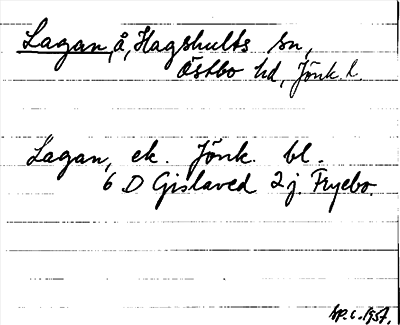 Lagan, å, Hagshults sn,
Östbo hd, Jönk. l.
Lagan, ek. Jönk. bl.
6 D Gislaved 2 j. Fryebo.
sp. c. 1957.